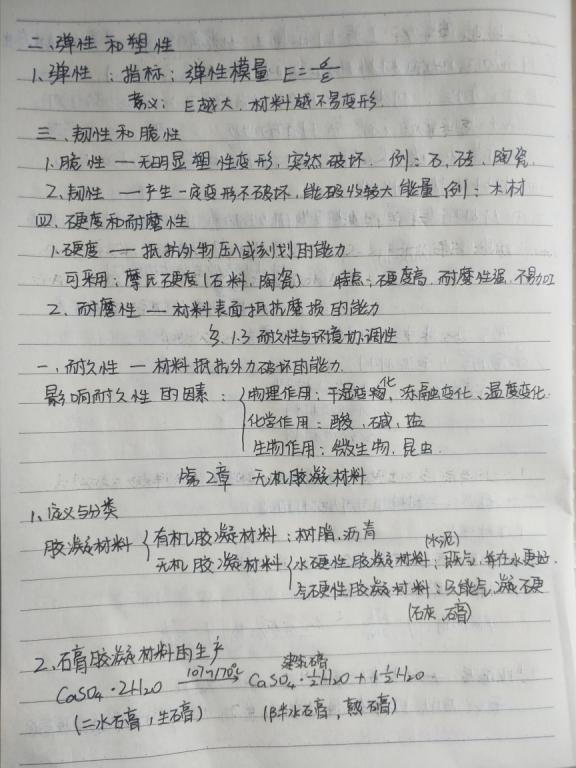 二、弹性和塑性
1、弹性：指标：弹性模量 E=σ/ε
意义：E越大，材料越不易变形.
三、韧性和脆性
1、脆性—无明显塑性变形，突然破坏. 例：石，砖，陶瓷.
2、韧性—产生一定变形不破坏，能吸收较大能量 例：木材
四、硬度和耐磨性
1、硬度—抵抗外物压入或刻划的能力
可采用：摩氏硬度(石料，陶瓷) 特点：硬度高，耐磨性强，不易加工
2、耐磨性—材料表面抵抗磨损的能力
§1.3 耐久性与环境协调性
一、耐久性—材料抵抗外力破坏的能力.
影响耐久性的因素：物理作用：干湿变化，冻融变化、温度变化.
化学作用：酸、碱、盐
生物作用：微生物，昆虫.
第2章 无机胶凝材料
1、定义与分类
胶凝材料 有机胶凝材料：树脂，沥青
(水泥)
无机胶凝材料 水硬性胶凝材料：既气，并在水更好.
气硬性胶凝材料：只能气，凝硬
(石灰，石膏)
2、石膏胶凝材料的生产
建筑石膏
CaSO₄·2H₂O 107~170℃ CaSO₄·½H₂O + 1½H₂O.
(二水石膏，生石膏) (β半水石膏，熟石膏)